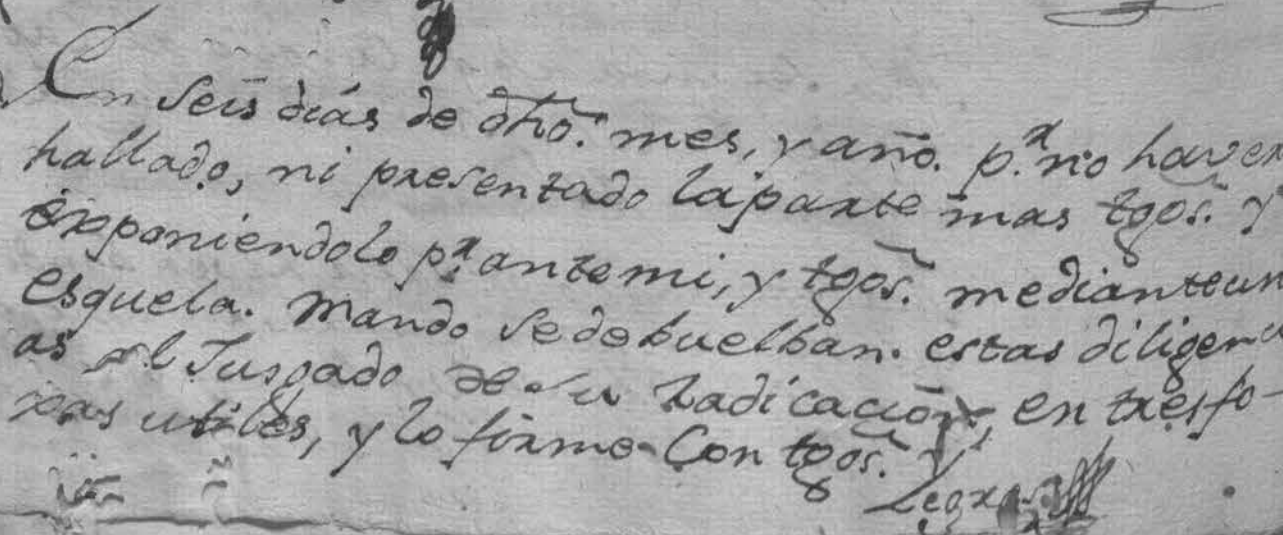 En seis dias de dho. mes, y año. pr. no haver
hallado, ni presentado la parte mas tgos. y
exponiendolo pr. ante mi, y tgos. mediante un
esquela. Mando se debuelban. estas diligenci
as al Jusgado de su Radicacion, en tres fo-
xas utiles, y lo firmo Con tgos. y